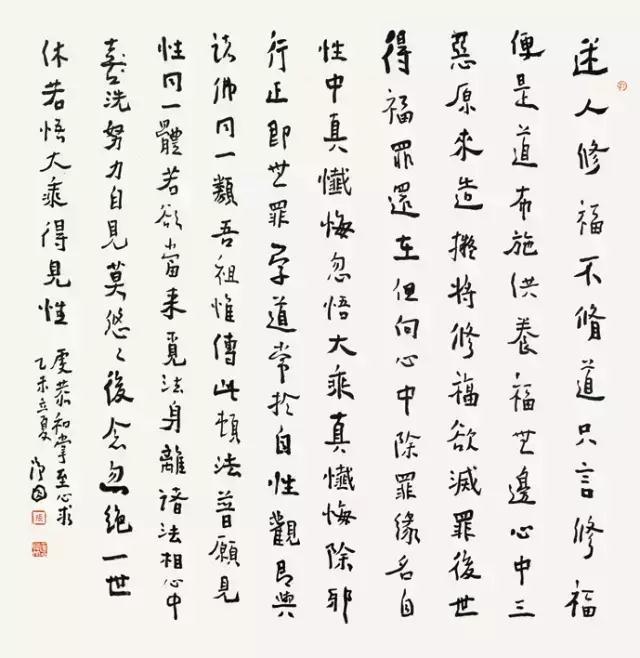 迷人修福不脩道只言修福
便是道布施供養福無邊心中三
惡原來造擬將修福欲滅罪後世
得福罪還在但向心中除罪緣名自
性中真懺悔忽悟大乘真懺悔除邪
行正即無罪學道常於自性觀即與
諸佛同一類吾祖惟傳此頓法普願見
性同一體若欲當來覓法身離諸法相心中
喜洗努力自見莫悠〻後念忽絕一世
休若悟大乘得見性
虔恭和掌至心求
乙未立夏